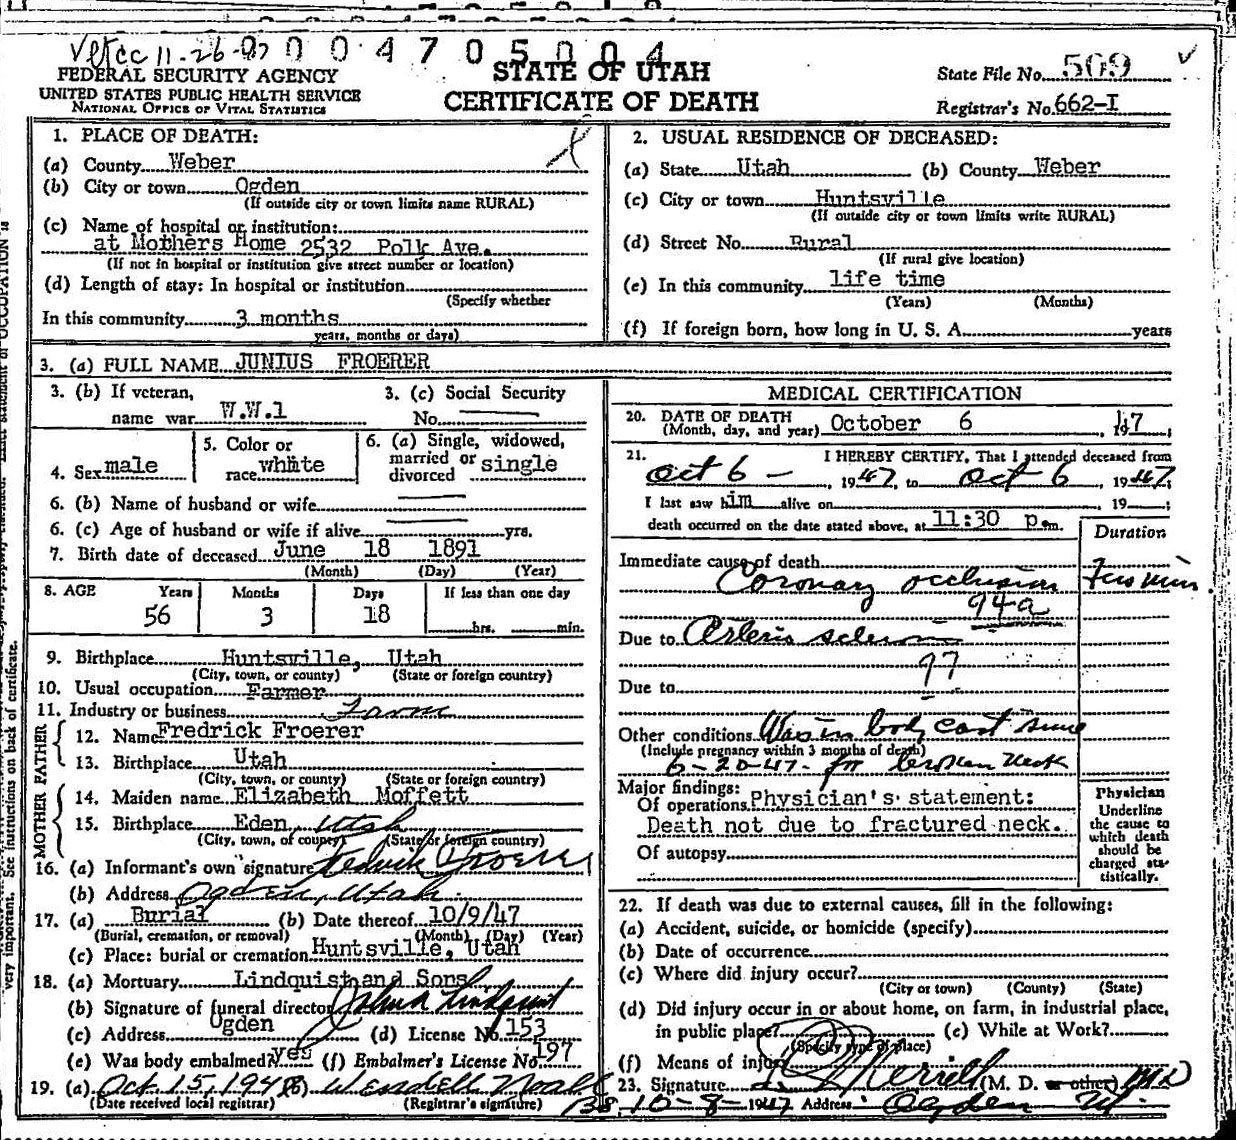 0 0 4 7 0 5 0 0 4
FEDERAL SECURITY AGENCY
UNITED STATES PUBLIC HEALTH SERVICE
NATIONAL OFFICE OF VITAL STATISTICS
STATE OF UTAH
CERTIFICATE OF DEATH
State File No. 509
Registrar's No. 662-I
1. PLACE OF DEATH:
(a) County Weber
(b) City or town Ogden
(If outside city or town limits name RURAL)
(c) Name of hospital or institution:
at Mothers Home 2532 Polk Ave.
(If not in hospital or institution give street number or location)
(d) Length of stay: In hospital or institution
(Specify whether
In this community 3 months
years, months or days)
2. USUAL RESIDENCE OF DECEASED:
(a) State Utah (b) County Weber
(c) City or town Huntsville
(If outside city or town limits write RURAL)
(d) Street No. Rural
(If rural give location)
(e) In this community life time
(Years) (Months)
(f) If foreign born, how long in U. S. A. years
3. (a) FULL NAME JUNIUS FROERER
3. (b) If veteran, name war W.W.1
3. (c) Social Security No.
4. Sex male
5. Color or race white
6. (a) Single, widowed, married or divorced single
6. (b) Name of husband or wife
6. (c) Age of husband or wife if alive yrs.
7. Birth date of deceased June 18 1891
(Month) (Day) (Year)
8. AGE Years Months Days If less than one day
56 3 18 hrs. min.
9. Birthplace Huntsville, Utah
(City, town, or county) (State or foreign country)
10. Usual occupation Farmer
11. Industry or business Farm
FATHER
12. Name Fredrick Froerer
13. Birthplace Utah
(City, town, or county) (State or foreign country)
MOTHER
14. Maiden name Elizabeth Moffett
15. Birthplace Eden, Utah
(City, town, or county) (State or foreign country)
16. (a) Informant's own signature Fedrik Froerer
(b) Address Ogden, Utah
17. (a) Burial (b) Date thereof 10/9/47
(Burial, cremation, or removal) (Month) (Day) (Year)
(c) Place: burial or cremation Huntsville, Utah
18. (a) Mortuary Lindquist and Sons
(b) Signature of funeral director John A Lindquist
(c) Address Ogden (d) License No. 153
(e) Was body embalmed? yes (f) Embalmer's License No. 197
19. (a) Oct 15, 194 (b) Wendell Noall
(Date received local registrar) (Registrar's signature)
MEDICAL CERTIFICATION
20. DATE OF DEATH
(Month, day, and year) October 6, 1947
21. I HEREBY CERTIFY, That I attended deceased from
Oct 6 - , 1947, to Oct 6 1947
I last saw him alive on , 19 ;
death occurred on the date stated above, at 11:30 p.m.
Duration
Immediate cause of death
Coronary occlusion Few min.
94a
Due to Arterio sclerosis
97
Due to
Other conditions Was in body cast since
(Include pregnancy within 3 months of death)
6-20-47 - for broken neck
Major findings:
Of operations Physician's statement:
Death not due to fractured neck.
Of autopsy
Physician
Underline
the cause to
which death
should be
charged sta-
tistically.
22. If death was due to external causes, fill in the following:
(a) Accident, suicide, or homicide (specify)
(b) Date of occurrence
(c) Where did injury occur?
(City or town) (County) (State)
(d) Did injury occur in or about home, on farm, in industrial place,
in public place? (e) While at Work?
(Specify type of place)
(f) Means of injury
23. Signature Merrill (M. D. or other) MD
10-8-1947 Address Ogden Ut.
very important. See instructions on back of certificate.